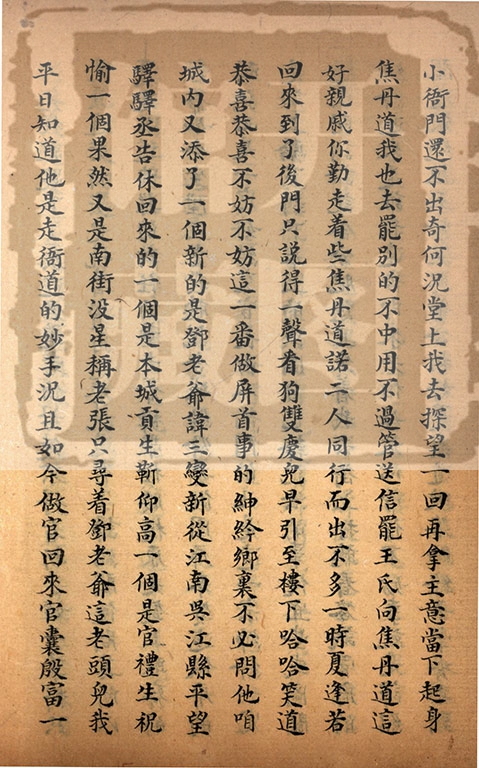 小衙門還不出奇何況堂上我去探望一回再拿主意當下起身
焦丹道我也去罷別的不中用不過管送信罷王氏向焦丹道這
好親戚你勤走着些焦丹道諾二人同行而出不多一時夏逢若
回來到了後門只說得一聲看狗雙慶兒早引至樓下哈哈笑道
恭喜恭喜不妨不妨這一番做屏首事的紳衿鄉裏不必問他咱
城內又添了一個新的是鄧老爺諱三變新從江南吳江縣平望
驛驛丞告休回來的一個是本城貢生靳仰高一個是官禮生祝
愉一個果然又是南街没星稱老張只尋着鄧老爺這老頭兒我
平日知道他是走衙道的妙手況且如今做官回來官囊殷富一